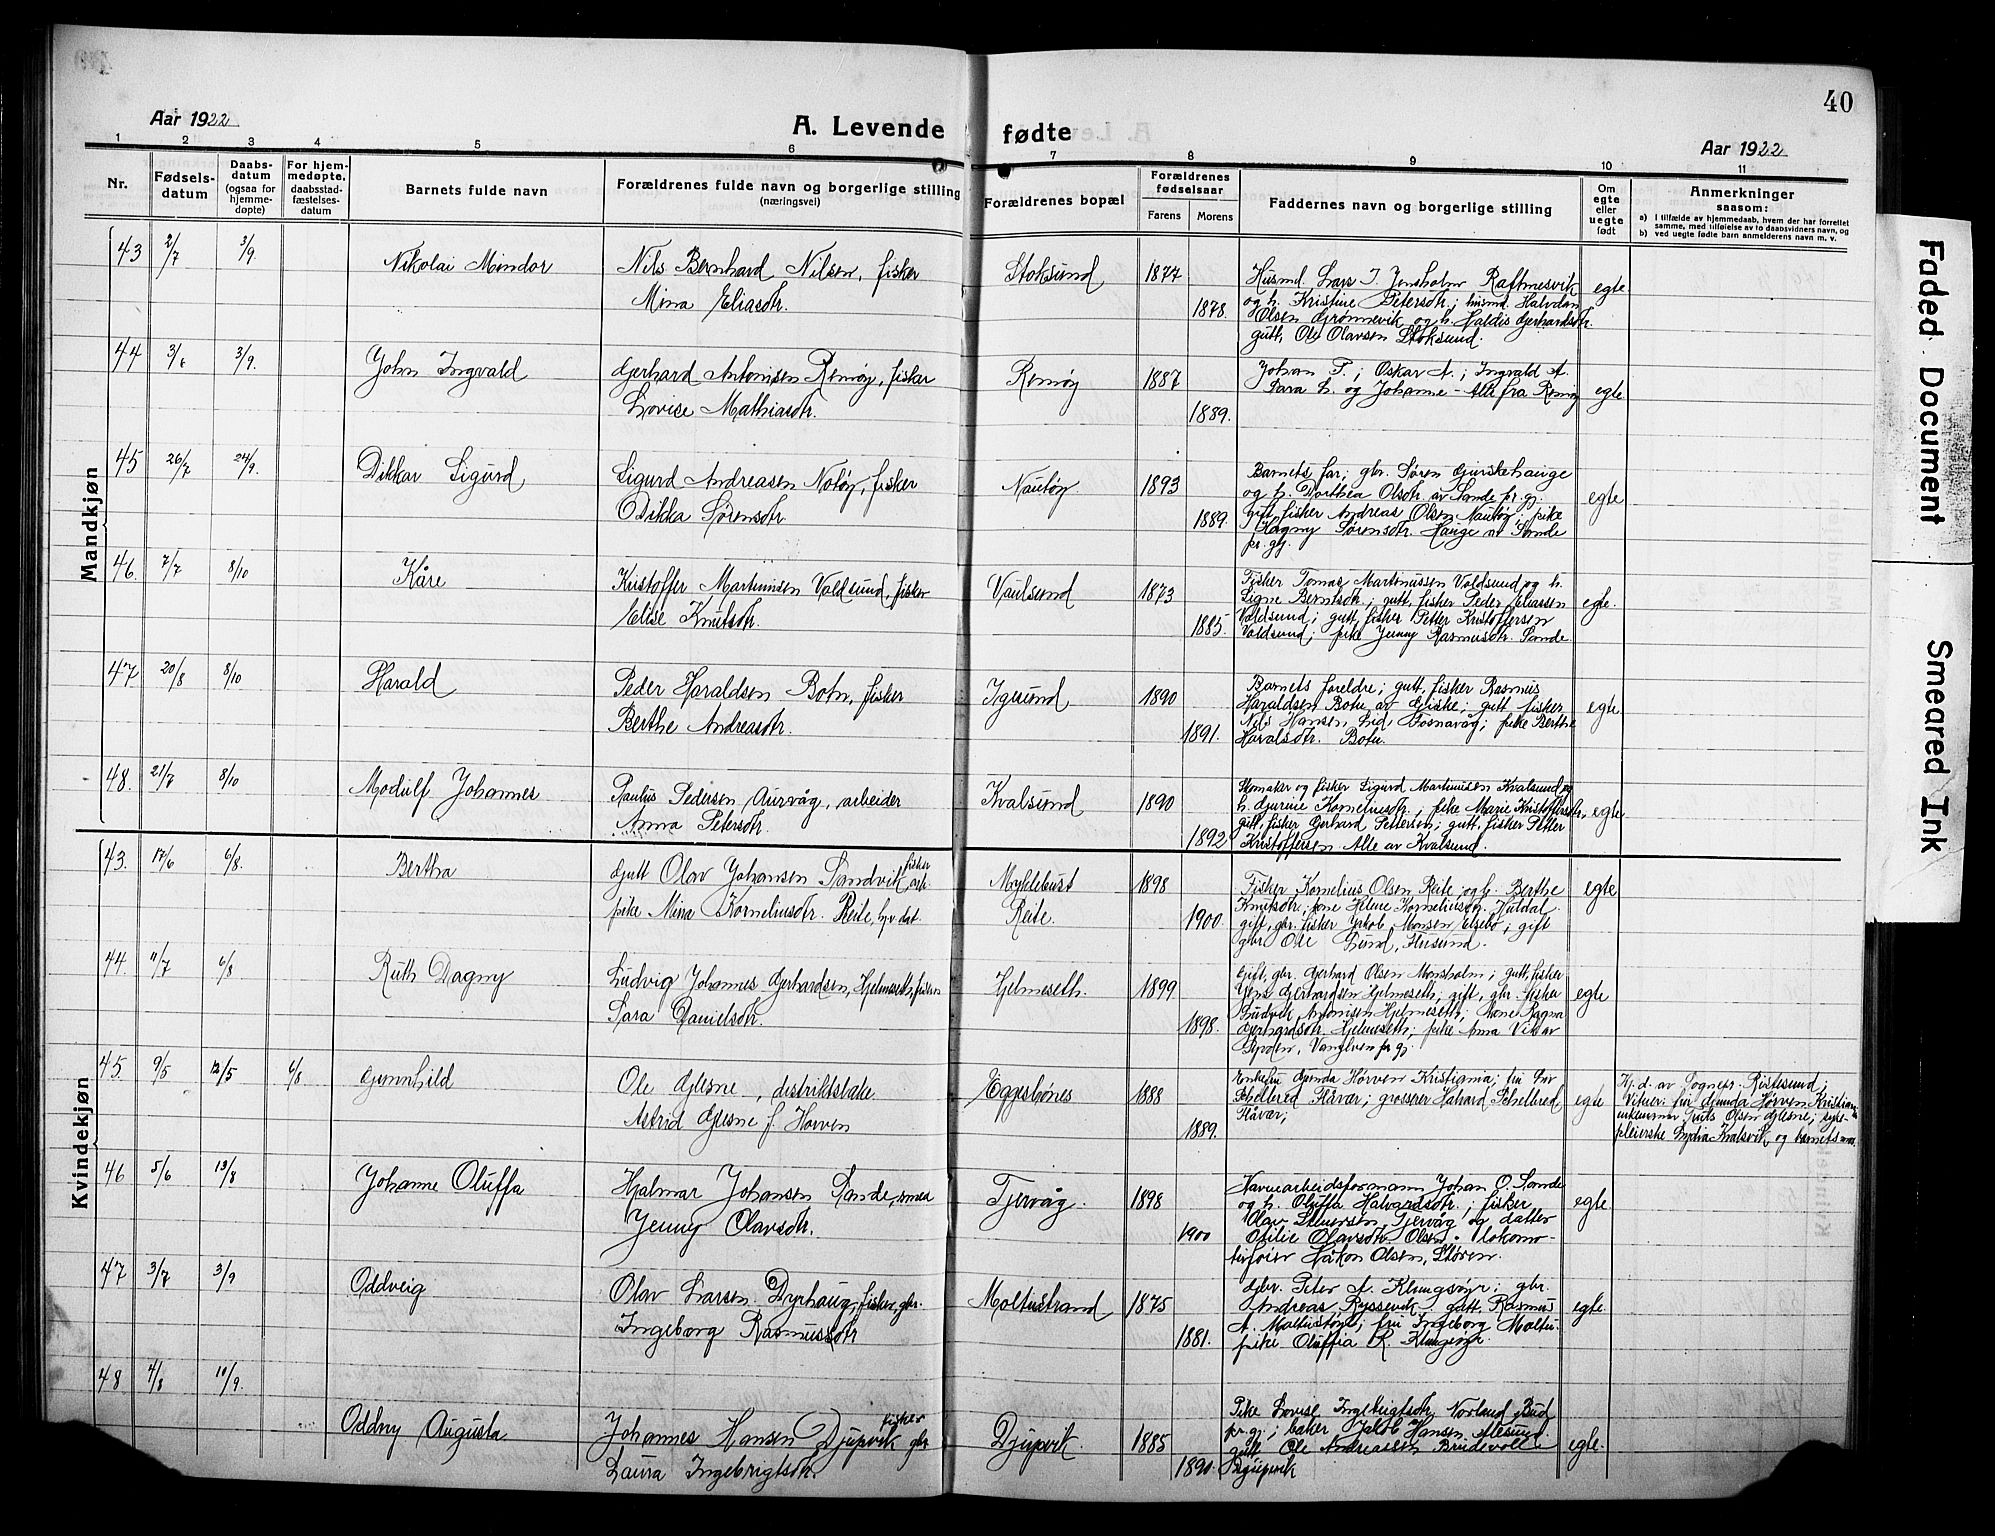 40
Aar 1922
A. Levende
fødte
Aar 1922
1 2 3 4 5 6 7 8 9 10 11
Nr.
Fødsels-
datum
Daabs-
datum
(ogsaa for
hjemme-
døpte)
For hjem-
medøpte,
daabsstad-
fæstelses-
datum
Barnets fulde navn
Forældrenes fulde navn og borgerlige stilling
(næringsvei)
Forældrenes bopæl
Forældrenes
fødselsaar
Farens
Morens
Faddernes navn og borgerlige stilling
Om
egte
eller
uegte
født
Anmerkninger
saasom:
a) I tilfælde av hjemmedaab, hvem der har forrettet
samme, med tilføielse av to daabsvidners navn, og
b) ved uegte fødte barn anmelderens navn m. v.
Mandkjøn
43 2/7 3/9. Nikolai Mindor
Nils Bernhard Nilsen, fisker
Mina Eliasdtr.
Stoksund 1877
1878.
Husmd. Lars J. Jensholm Raftnesvik
og h. Kristine Petersdtr; husmd. Halvdan
Olsen Grønnevik og h. Haldis Gerhardsdtr.
gutt, Ole Olavsen Stoksund.
egte
44 3/6 3/9. John Ingvald
Gerhard Antonsen Remøy, fisker
Lovise Mathiasdtr.
Remøy 1887
1889.
Johan P.; Oskar A.; Ingvald A.
Sara h. og Johanne - Alle fra Remøy
egte.
45 26/7 24/9. Dikkar Sigurd
Sigurd Andreasen Notøy, fisker
Dikka Sørensdtr.
Nautøy 1893
1889.
Barnets far; gbr. Søren Gjurskehauge
og h. Dorthea Olsdtr. av Sande pr.gj.
gift, fisker Andreas Olsen Nautøy; pike
Hagny Sørensdtr. Hauge av Sande
pr.gj.
egte
46. 7/7 8/10 Kåre
Kristoffer Martinusen Voldsund, fisker
Elise Knutsdtr.
Vaulsund 1873
1885.
Fisker Tomas Martinussen Voldsund og h.
Signe Berntsdtr; gutt, fisker Peder Eliassen
Voldsund; gutt, fisker Petter Kristoffersen
Voldsund; pike Jenny Rasmusdtr. Sande
egte.
47 20/8 8/10 Harald
Peder Haraldsen Botn, fisker
Berthe Andreasdtr.
Igesund 1890
1891.
Barnets foreldre; gutt, fisker Rasmus
Haraldsen Botn av Giske; gutt fisker
Nils Hansen, Lid, Fosnavåg; pike Berthe
Haralsdtr. Botn.
egte.
48. 21/7 8/10 Modulf Johannes
Paulus Pedersen Aurvåg, arbeider
Anna Petersdtr.
Kvalsund 1890
1892
Skomaker og fisker Sigurd Martinusen Kvalsund og
h. Gurine Korneliusdtr; pike Marie Kristoffersdtr,
gutt, fisker Gerhard Pettersen; gutt, fisker Petter
Kristoffersen. Alle av Kvalsund.
egte
Kvindekjøn
43. 17/6 6/8. Bertha
gutt Olav Johansen Sandvik fisker arb.
pike Mina Korneliusdtr. Reite, hj.v. dat.
Myklebust
Reite 1898
1900.
Fisker Kornelius Olsen Reite og h. Berthe
Knutsdtr; pne Helene Korneliusdtr. Huldal.
gift, gbr. fisker Jakob Monsen Elsebø; gift
gbr Ole Sund, Husund.
egte
44. 11/7 6/8 Ruth Dagny
Ludvig Johannes Gerhardsen, Hjelmeseth, fisker
Sara Danielsdtr.
Hjelmeseth. 1899
1898.
Gift, gbr. Gerhard Olsen Monsholm; gutt, fisker
Jens Gerhardsen Hjelmeseth; gift, gbr fisker
Ludvik Antonsen Hjelmeseth; kone Ragna
Gerhardsdtr. Hjelmeseth; pike Anna Vik av
Syvden, Vanylven pr.gj.
egte
45. 9/5 12/5 6/8 Gunnhild
Ole Gjesne, distriktslæke
Astrid Gjesne f. Hørven
Eggesbønes 1888
1889.
Enkefru Gunda Hørven Kristiania; fru
Schelbred Flåvær; grosserer Halvard Schelbred
Flåvær;
egte
Hj.d. av Sognepr. Ristesund;
Vitner: fru Gunda Hørven Kristiania
Olsen Gjesne; syke-
pleierske Lydia Kvalsvik og barnets mor.
46 5/6 13/8 Johanne Oluffa
Hjalmar Johansen Sande,
Jenney Olavsdtr.
Tjervåg. 1898
1900
Havnearbeidsformann Johan O. Sande
og h. Oluffa Halvardsdtr.; fisker
Olav Elnersen Tjervåg og datter
Otilie Olavsdtr Olsen. lokomo-
tivfører Håkon Olsen, Støren.
egte.
47 3/7 3/9 Oddveig
Olav Larsen Dyrhaug, fisker, gbr.
Ingeborg Rasmussdtr
Moltustrand 1875
1881.
gbr. Peter A. Klungsøyr; gbr.
Andreas Ryssevik. gutt Rasmus
A. Moltustøyl; fru Ingeborg Moltu;
pike Oluffia R. Klungsøyr.
egte.
48. 4/8 10/9. Oddny Augusta
Johannes Hansen Djupvik fisker gbr
Laura Ingebrigtsdtr.
Djupvik. 1885
1890.
Pike Lovise Ingebrigtsdtr Norland Bud
pr.gj; baker Jakob Hansen Ålesund.
gutt Ole Andreassen Brudevoll
Djupvik
egte.
Faded Document
Smeared Ink